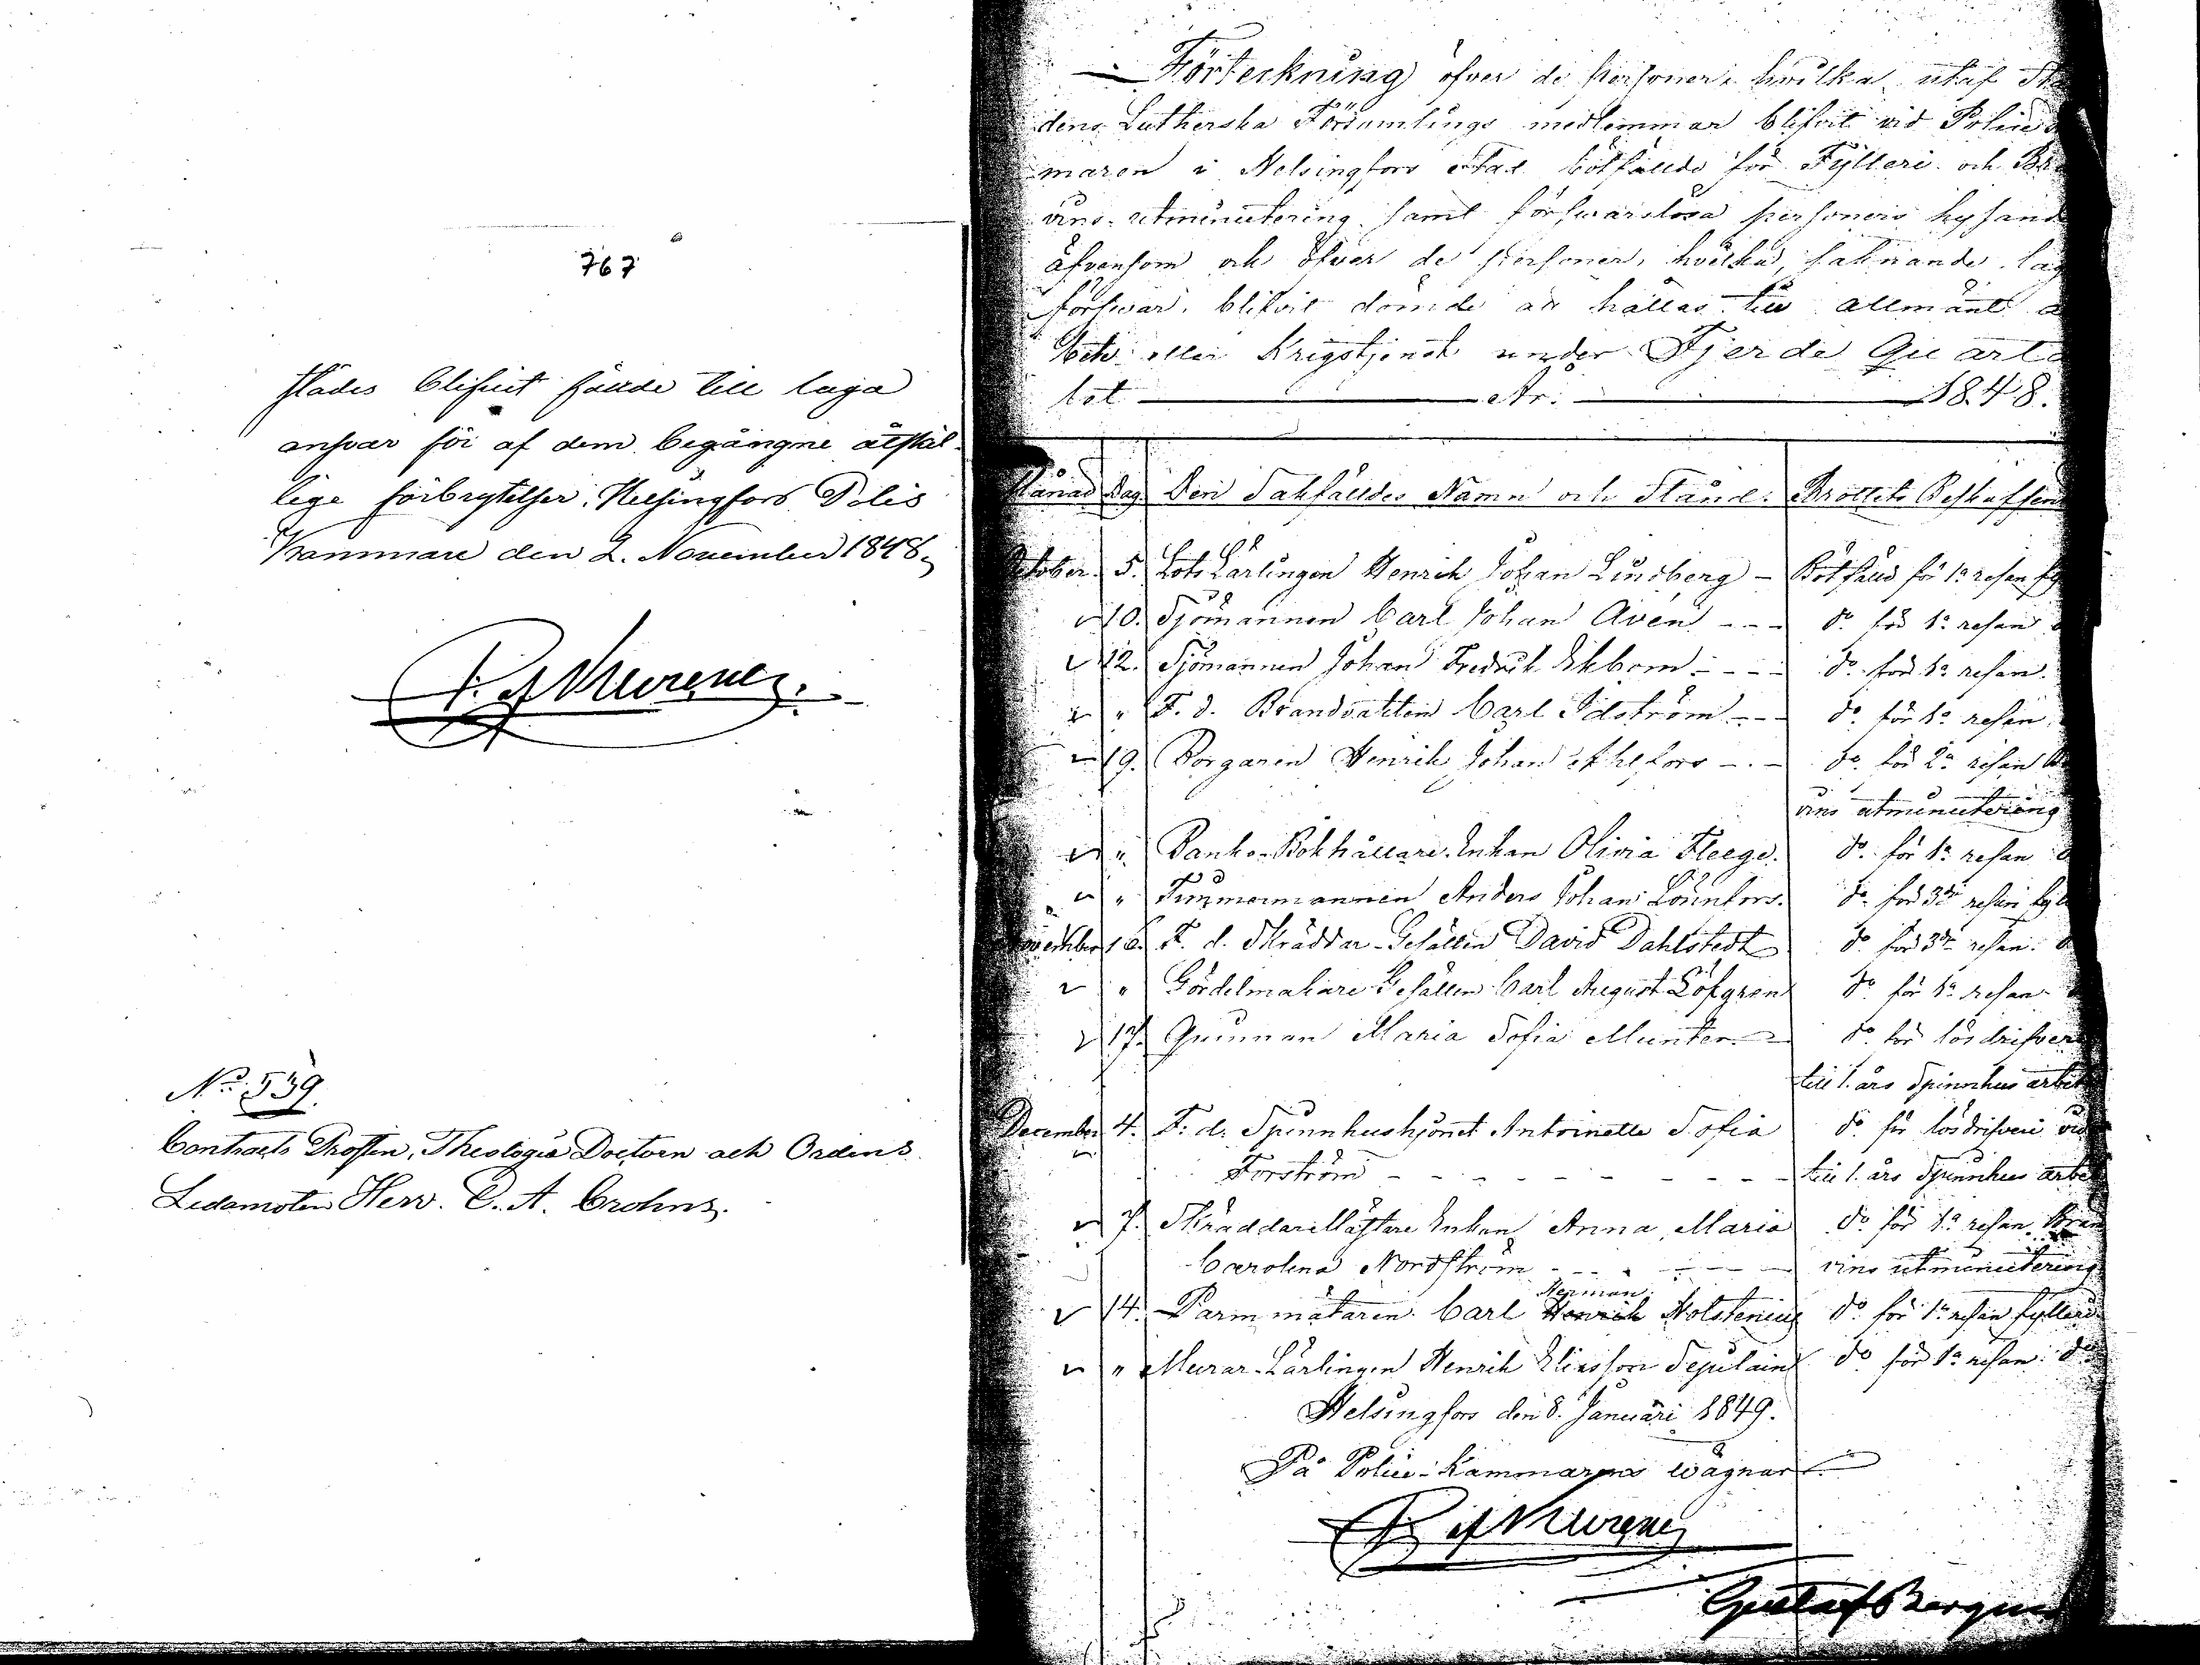 767
stådes blifvit fällde till laga
ansvar för af dem begångne åtskil-
lige förbrytelser. Helsingfors Polis
Kammare den 2. November 1848.
No 539.
Contracts Prosten, Theologiæ Doctorn och Ordens
Ledamoten Herr C. A. Crohns.
Förteckning öfver de personer, hvilka utaf Sta
dens Lutherska Församlings medlemmar blifvit vid Police
maren i Helsingfors Stad botfällde för Fylleri och Brä
vins-utminutering samt förswarslösa personers hysand
äfvensom och öfver de personer, hvilka, saknande lag
förswar, blifvit dömde att hållas till allmänt a
bete eller Krigstjenst under Fjerde Quarta
let År. 1848.
Månad Dag Den Sakfälldes Namn och Stånd. Brottets Beskaffen
October. 5. Lots Lärlingen Henrik Johan Lindberg - Botfälld för 1a resan fy
10. Sjömannen Carl Johan Avén --- do för 1a resan
12. Sjömannen Johan Fredrik Ekbom --- do för 1a resan.
" F. d. Brandvakten Carl Idström --- do för 1a resan
19. Borgaren Henrik Johan Ahlfors --- do för 2a resan B
vins utminutering
" Banko-Bokhållare Enkan Olivia Fleege. do för 1a resan
" Timmermannen Anders Johan Lönnfors. do för 3de resan fyl
November 16. F. d. Skräddar-Gesällen David Dahlstedt do för 3de resan.
" Gördelmakare Gesällen Carl August Löfgren do för 1a resan
17. Qvinnan Maria Sofia Munter - do för lösdrifver
till 1. års Spinnhus arbet
December 4. F. d. Spinnhushjonet Antoinette Sofia do för lösdrifveri
Forström - - - - - - - - till 1. års Spinnhus arbe
7. Skräddaremästare Enkan Anna Maria do för 1a resan Brän
Carolina Nordström - - - - vins utminutering
Herman
14. Parmmätaren Carl Henrik Holstenius do för 1a resan fylleri
" Murar-Lärlingen Henrik Eliasson Tepulain do för 1a resan. do
Helsingfors den 8. Januari 1849.
På Police-Kammarens wägnar